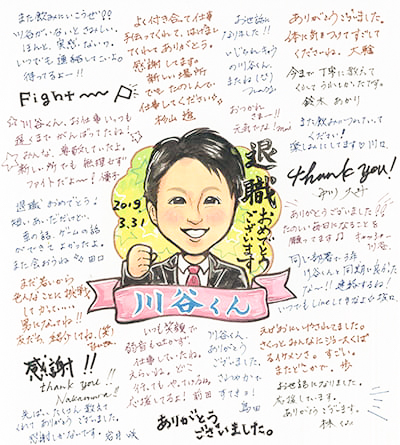 また飲みにいこうぜ!!
川谷がいないとさみしい。
ほんと、実感ないワ。
いつでも連絡してこいよ。
待ってるよー!!
Fight〜〜
よく付き合って仕事
手伝ってくれて、
くれてありがとう。
感謝してます。
新しい場所
でも たのしんで
仕事してください☆
杉山 透
お世話に
なりました!!
の川谷くん、
またね(笑)
おつかれ
さまー!!
元気でね!
ありがとうございました。
体に気をつけてすごして
くださいね。大輪
今まで丁寧に教えて
くれてうれしかったです。
鈴木 あかり
また飲みにつれていって
ください!
楽しみにしてます♡ 川口
thank you!
☆川谷くん、お仕事いつも
遅くまでがんばってたね!
みんな、尊敬していたよ。
新しい所でも無理せず
ファイトだよー!
退職おめでとう!
短いあいだだけど、
車の話、ゲームの話
ができてよかったよ。
また会おうね 多田
2019
3.31
退職
おめでとう
ございます
川谷くん
ありがとうございました!!
たのしい毎日になることを
願ってます♪
川谷。
同じ部署で3年
川谷くんと同期で良かった
なー!! 連絡するね!
いつでもLineして
まだ若いから
色んなことに挑戦
してかっこいい
男になってね!!
友だち、紹介してね。(笑)
感謝!!
thank you!!
Nakamura
先ぱい、たくさん教えて
くれてありがとうございました。
感謝しかないです。岩井 咲
いつも笑顔で
弱音もはかず、
仕事していたね。
えらいよ。どこ
行ってもやっていける。
応援してるよ! 前田
川谷くん、
ありがとう
ございました。
さわやかで
すてき!
島田
ありがとう
ございました。
えがおにいやされてました。
さくっとみんなにごちそうしてくれ
るイケメンさ。すごい。
またどこかで。歩
お世話になりました。
応援しています。
ありがとうございます。
林